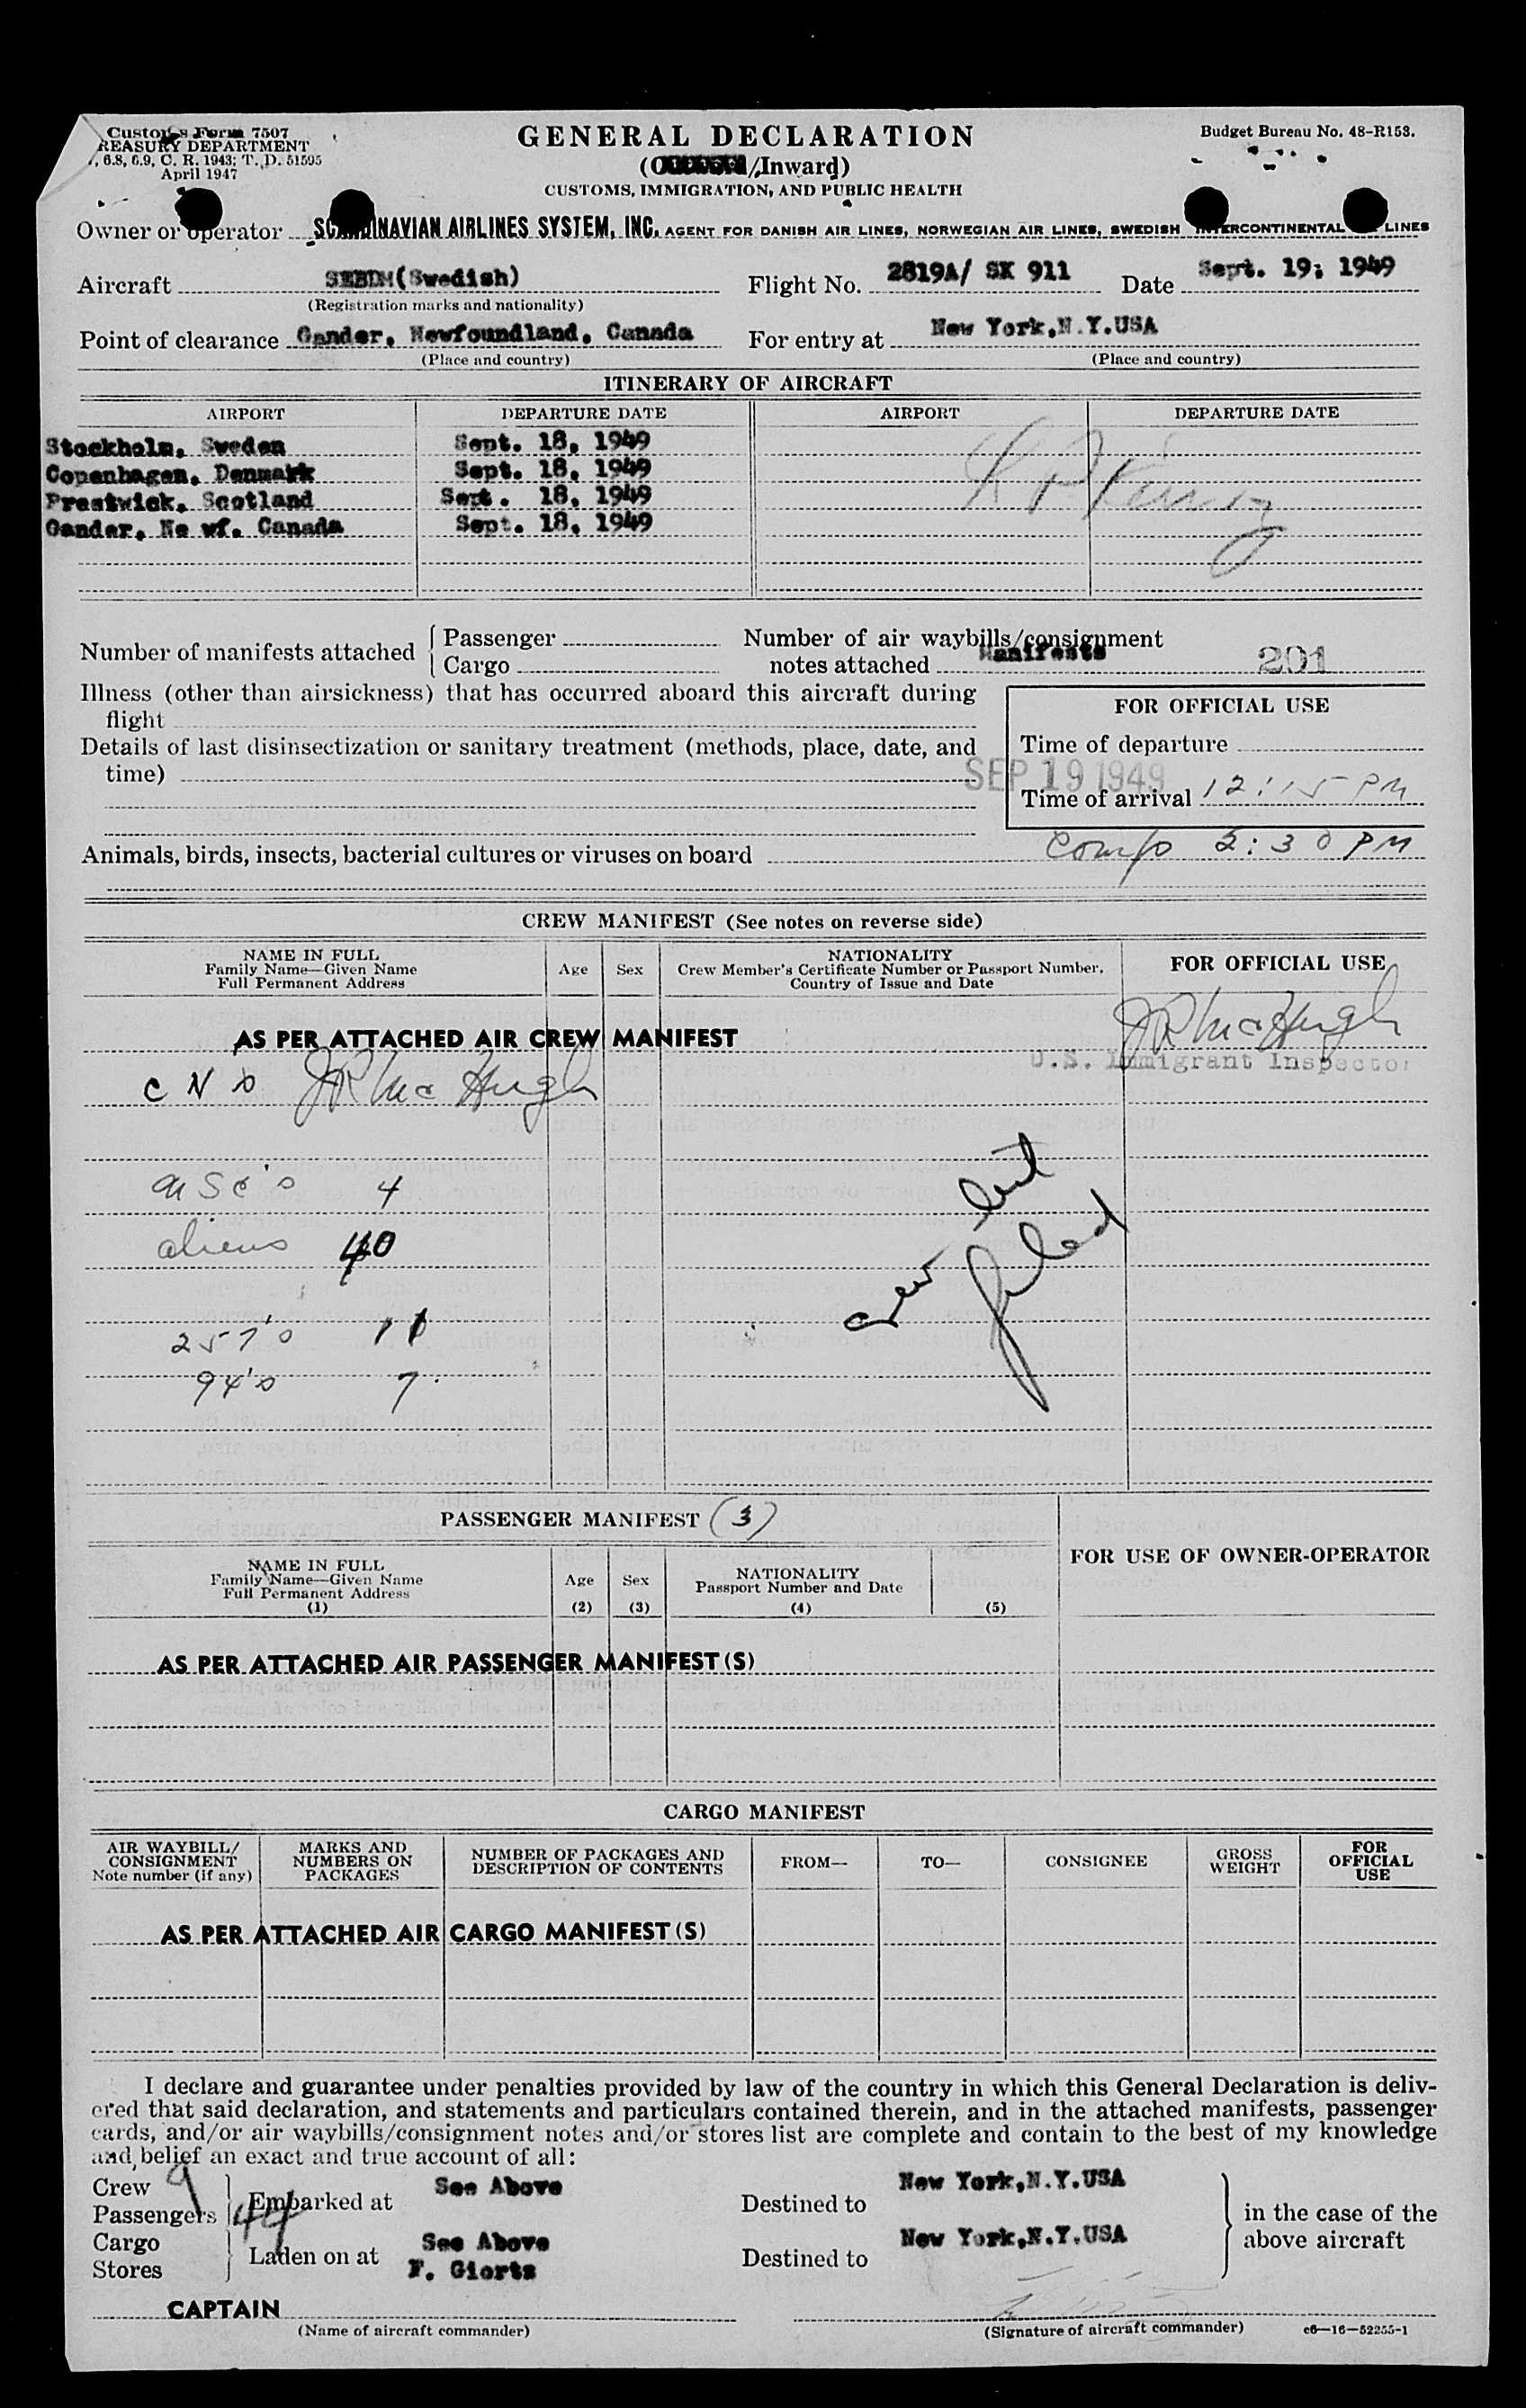 Customs Form 7507
REASURY DEPARTMENT
6.8, 6.9, C. R. 1943; T. D. 51595
April 1947
GENERAL DECLARATION
/Inward)
CUSTOMS, IMMIGRATION, AND PUBLIC HEALTH
Budget Bureau No. 48-R153.
Owner or operator SCANDINAVIAN AIRLINES SYSTEM, INC. AGENT FOR DANISH AIR LINES, NORWEGIAN AIR LINES, SWEDISH INTERCONTINENTAL LINES
Aircraft SEBDM(Swedish) Flight No. 2819A/ SK 911 Date Sept. 19, 1949
(Registration marks and nationality)
Point of clearance Gander, Newfoundland, Canada For entry at New York,N.Y.USA
(Place and country) (Place and country)
ITINERARY OF AIRCRAFT
AIRPORT DEPARTURE DATE AIRPORT DEPARTURE DATE
Stockholm, Sweden Sept. 18, 1949
Copenhagen, Denmark Sept. 18, 1949
Prestwick, Scotland Sept. 18, 1949
Gander, Ne wf. Canada Sept. 18, 1949
Number of manifests attached { Passenger
Cargo
Number of air waybills/consignment
notes attached Manifests 201
Illness (other than airsickness) that has occurred aboard this aircraft during
flight
Details of last disinsectization or sanitary treatment (methods, place, date, and
time)
FOR OFFICIAL USE
Time of departure
SEP 19 1949
Time of arrival 12:15 PM
Comp 2:30 PM
Animals, birds, insects, bacterial cultures or viruses on board
CREW MANIFEST (See notes on reverse side)
NAME IN FULL
Family Name—Given Name
Full Permanent Address
Age Sex
NATIONALITY
Crew Member's Certificate Number or Passport Number,
Country of Issue and Date
FOR OFFICIAL USE
AS PER ATTACHED AIR CREW MANIFEST
JR McHugh
U.S. Immigrant Inspector
JR McHugh
USC's 4
aliens 40
257's 11
94's 7
crew list
filed
PASSENGER MANIFEST (3)
NAME IN FULL
Family Name—Given Name
Full Permanent Address
(1)
Age
(2)
Sex
(3)
NATIONALITY
Passport Number and Date
(4) (5)
FOR USE OF OWNER-OPERATOR
AS PER ATTACHED AIR PASSENGER MANIFEST(S)
CARGO MANIFEST
AIR WAYBILL/
CONSIGNMENT
Note number (if any)
MARKS AND
NUMBERS ON
PACKAGES
NUMBER OF PACKAGES AND
DESCRIPTION OF CONTENTS
FROM—
TO—
CONSIGNEE
GROSS
WEIGHT
FOR
OFFICIAL
USE
AS PER ATTACHED AIR CARGO MANIFEST(S)
I declare and guarantee under penalties provided by law of the country in which this General Declaration is deliv-
ered that said declaration, and statements and particulars contained therein, and in the attached manifests, passenger
cards, and/or air waybills/consignment notes and/or stores list are complete and contain to the best of my knowledge
and belief an exact and true account of all:
Crew 9
Passengers 44
Embarked at See Above Destined to New York,N.Y.USA
Cargo
Stores
Laden on at See Above Destined to New York,N.Y.USA
in the case of the
above aircraft
F. Giertz
CAPTAIN
(Name of aircraft commander) (Signature of aircraft commander) c6—16—52255-1